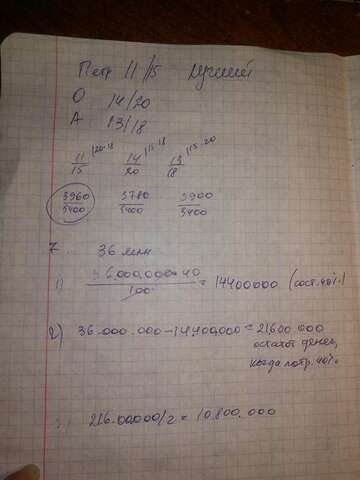 Петр 11/15 лучший
О 14/20
А 13/18
11/15 |20·18 14/20 |15·18 13/18 |15·20
3960/5400 3780/5400 3900/5400
7. 36 млн
1) 36.000.000·40/100 = 14400000 (сост. 40%)
2) 36.000.000-14,400,000=21600.000
остаток денег,
когда потр. 40%
3) 216.00000/2 = 10.800.000